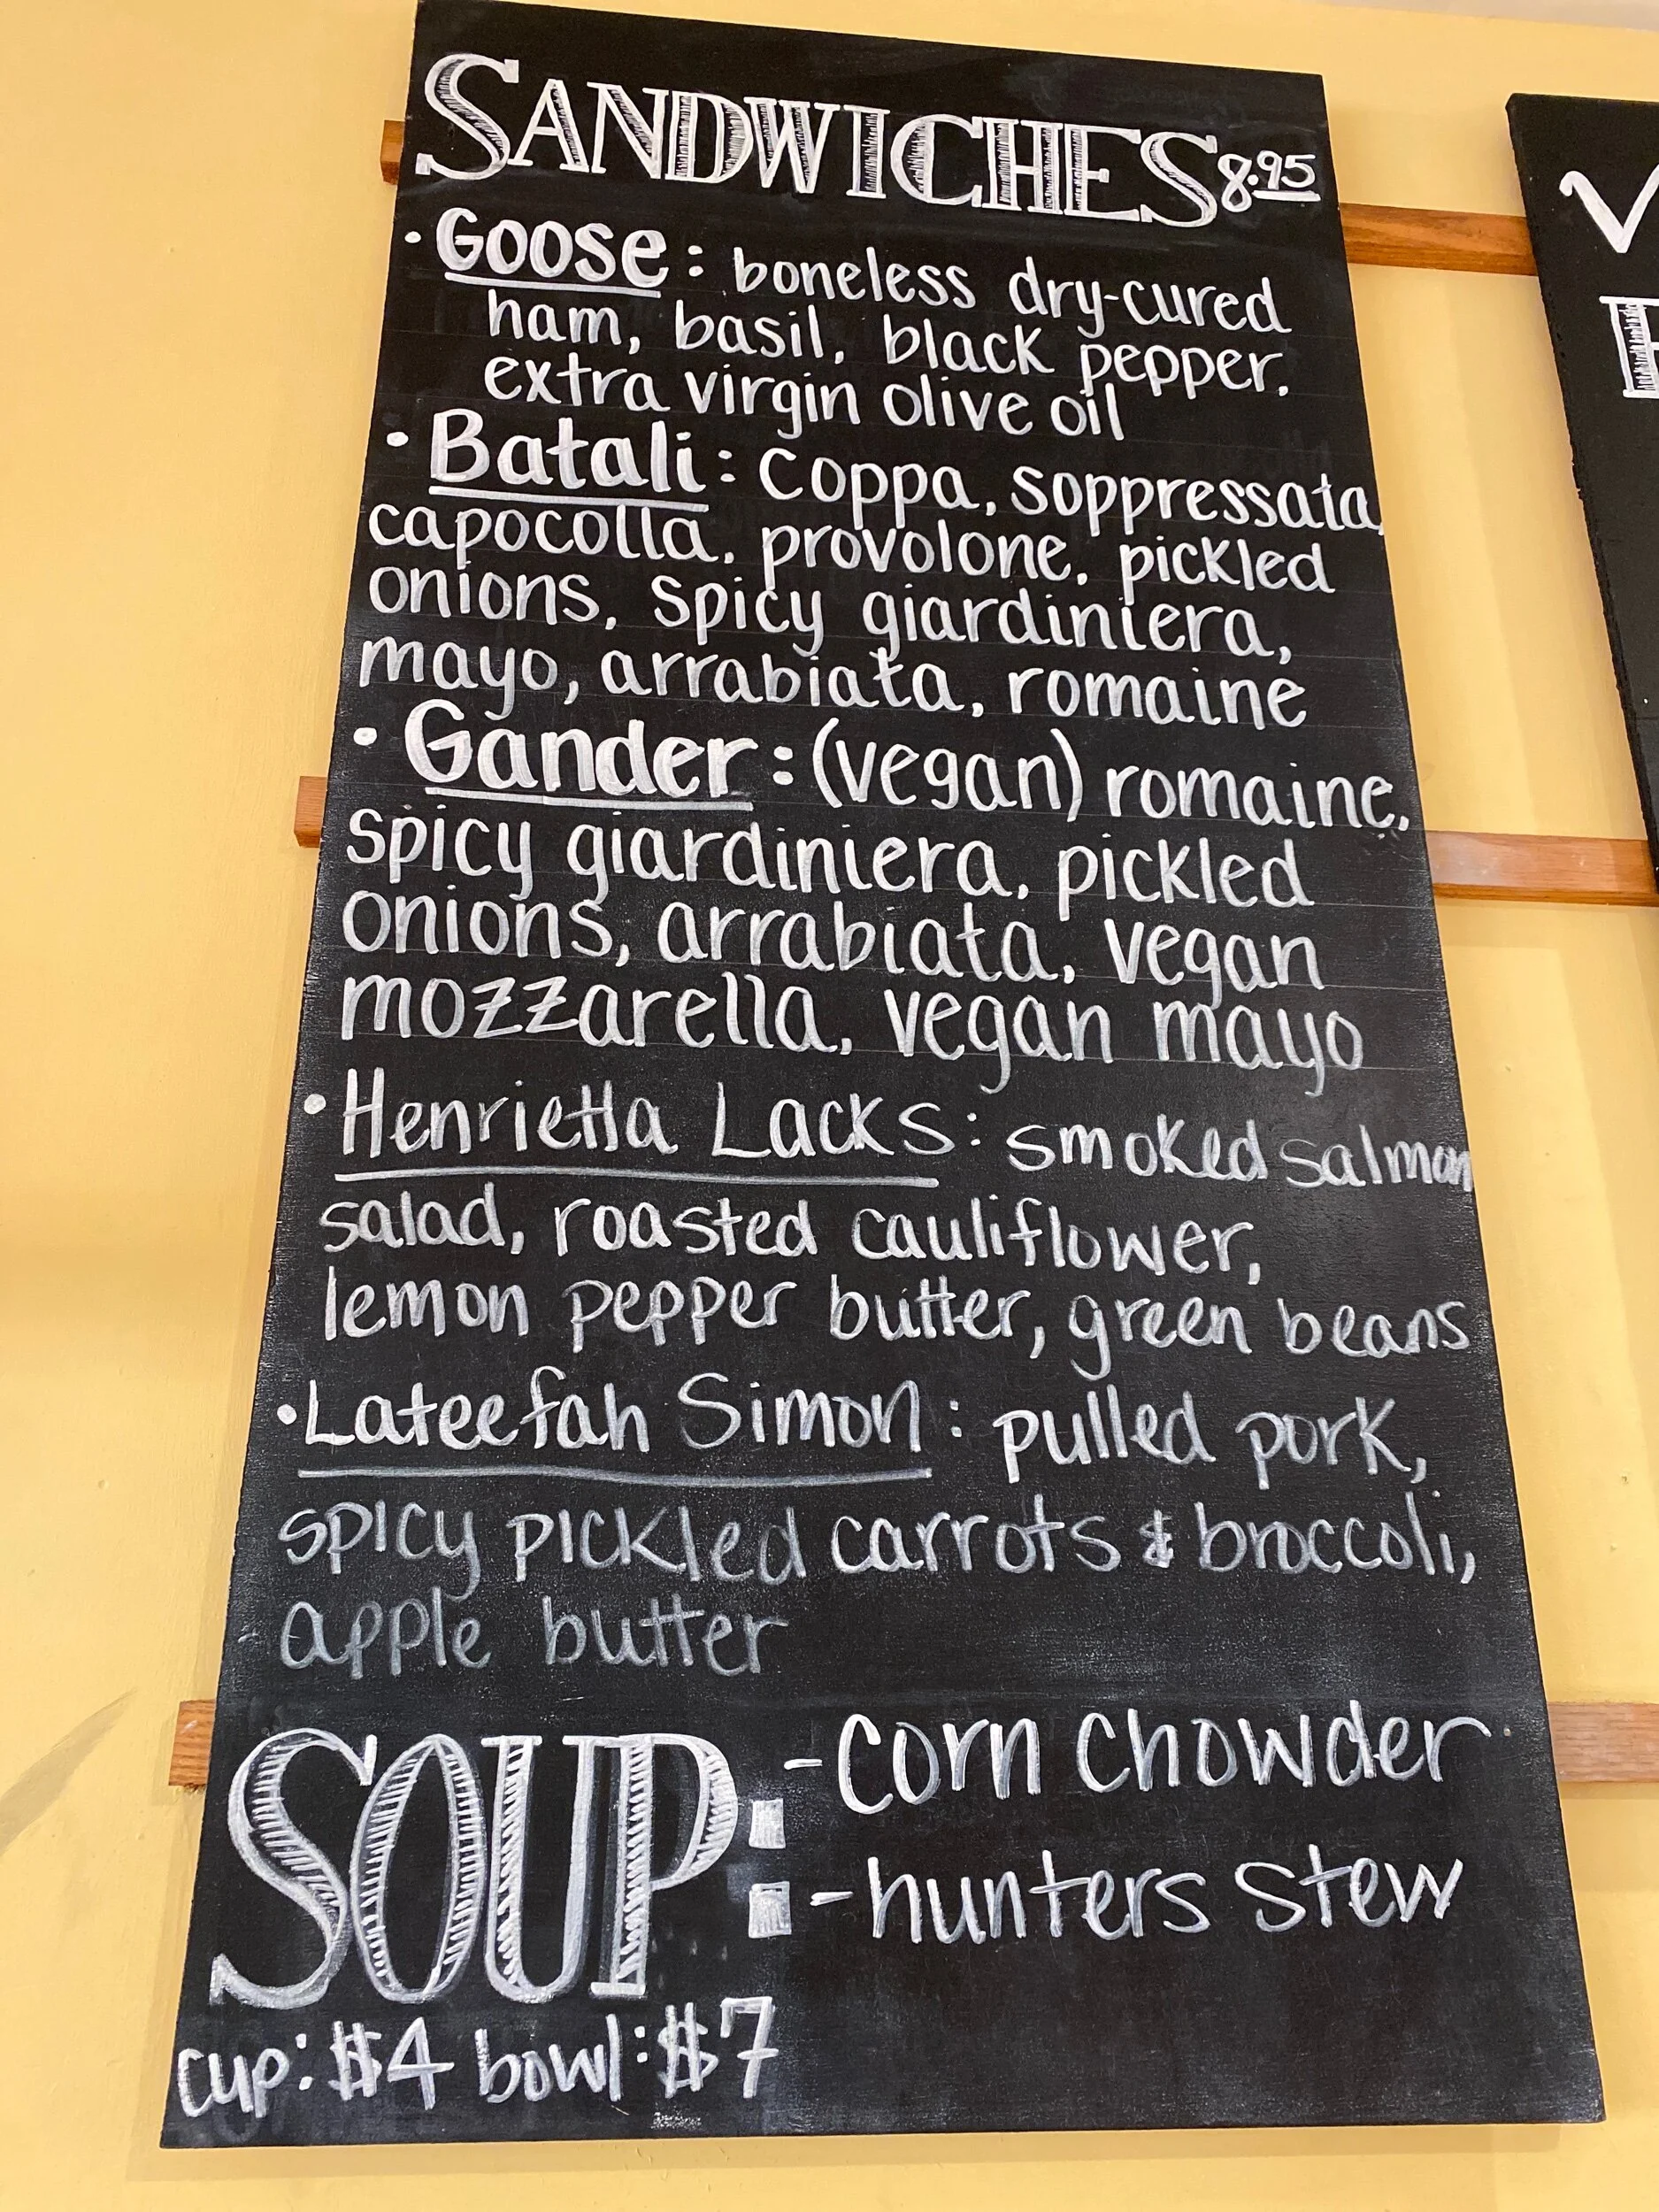 SANDWICHES 8.95
• Goose: boneless dry-cured
ham, basil, black pepper,
extra virgin olive oil
• Batali: coppa, soppressata,
capocolla, provolone, pickled
onions, spicy giardiniera,
mayo, arrabiata, romaine
• Gander: (vegan) romaine,
spicy giardiniera, pickled
onions, arrabiata, vegan
mozzarella, vegan mayo
• Henrietta Lacks: smoked salmon
salad, roasted cauliflower,
lemon pepper butter, green beans
• Lateefah Simon: pulled pork,
spicy pickled carrots & broccoli,
apple butter
SOUP: -corn chowder
-hunters stew
cup: $4 bowl: $7